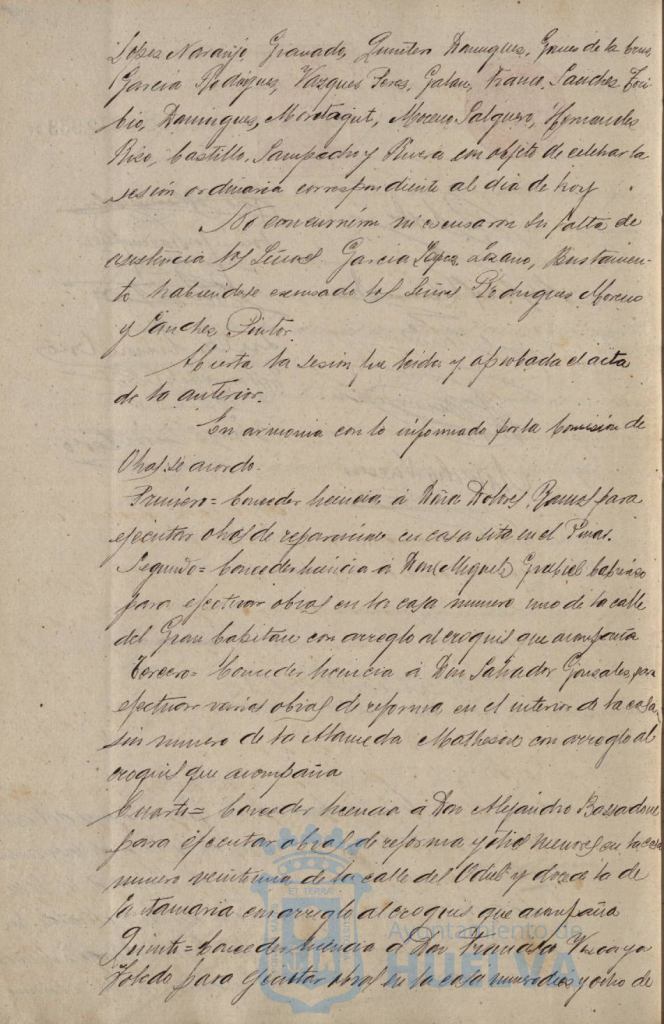 Lopez Naranjo, Granado, Quintero Dominguez, Garcia de la Cruz,
Garcia Rodriguez, Vazquez Perez, Galan, Franco, Sanchez Tori
bio, Dominguez, Moratagut, Moreno Salguero, Hernandez
Rizo, Castillo, Sampedro y Rivera con objeto de celebrar la
sesión ordinaria correspondiente al dia de hoy.
No concurrieron ni excusaron su falta de
asistencia los Señores Garcia Lopez Lozano, Bustamen-
te habiendose excusado los Señores Rodriguez Moreno
y Sanchez Pintor.
Abierta la sesion fue leida y aprobada el acta
de la anterior.
En armonia con lo informado por la Comisión de
Obras se acordo.
Primero = Conceder licencia á Doña Dolores Ramos para
ejecutar obras de reparacion en casa sita en el
Segundo = Conceder licencia á Don Miguel
para efectuar obras en la casa numero uno de la calle
del Gran Capitan con arreglo al croquis que acompaña
Tercero = Conceder licencia á Don Salvador Gonzales para
efectuar varias obras de reforma en el interior de la casa
sin numero de la Alameda Matheson con arreglo al
croquis que acompaña
Cuarto = Conceder licencia á Don Alejandro Bassadone
para ejecutar obras de reforma y otras menores en la casa
numero veintiuna de la calle del Odiel y doce la de
con arreglo al croquis que acompaña
Quinto = Conceder licencia á Don Francisco Vizcaya
Toledo para ejecutar obras en la casa numero diez y ocho de
Ayuntamiento de
HUELVA